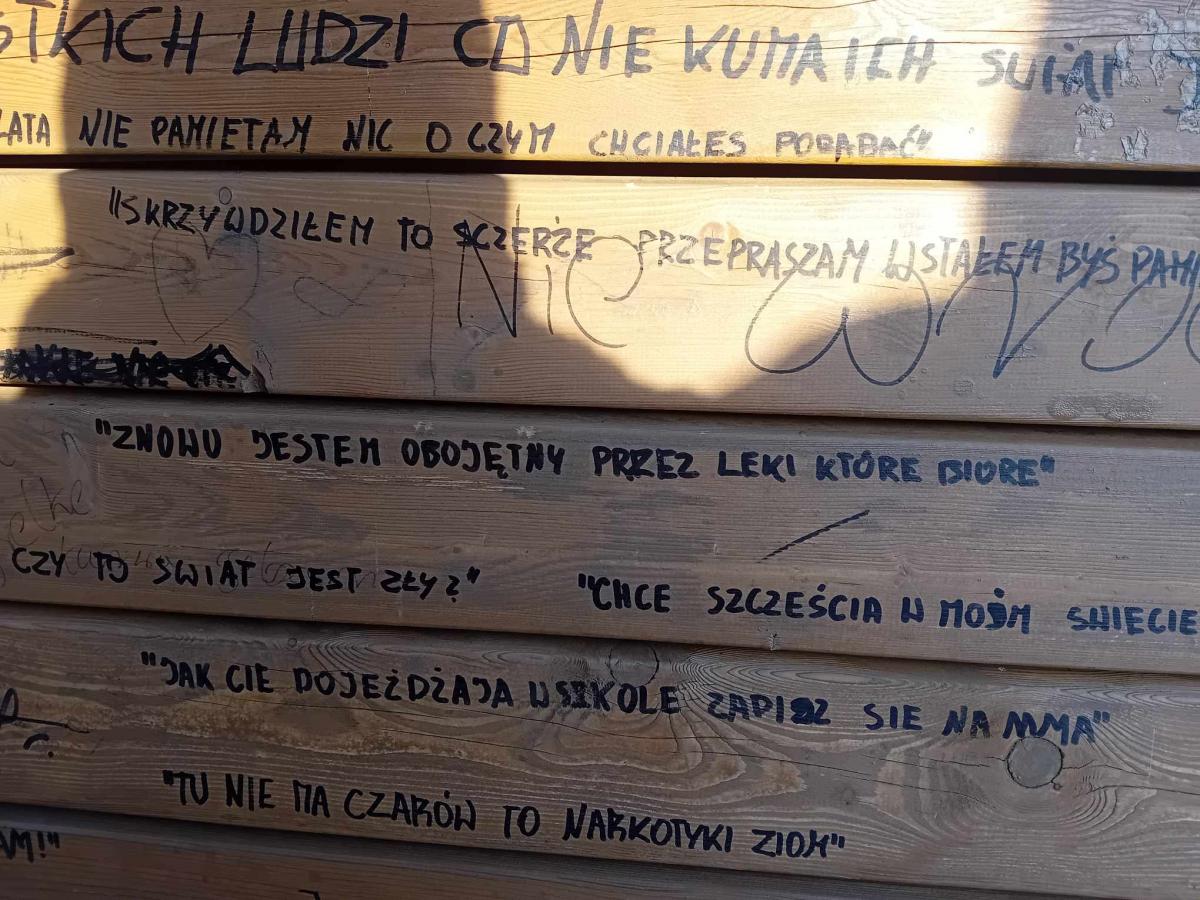 STKICH LUDZI CO NIE KUMA ICH SWIAT
LATA NIE PAMIETAM NIC O CZYM CHCIAŁES POGADAĆ"
"SKRZYWDZIŁEM TO SCZERZE PRZEPRASZAM WSTAŁEM BYŚ PAMI
NIC
"ZNOWU JESTEM OBOJĘTNY PRZEZ LEKI KTÓRE BIORE"
CZY TO SWIAT JEST ZŁY?" "CHCE SZCZEŚCIA W MOIM SWIECIE
"JAK CIE DOJEŻDŻAJA W SZKOLE ZAPISZ SIE NA MMA"
"TU NIE MA CZARÓW TO NARKOTYKI ZIOM"
AM!"